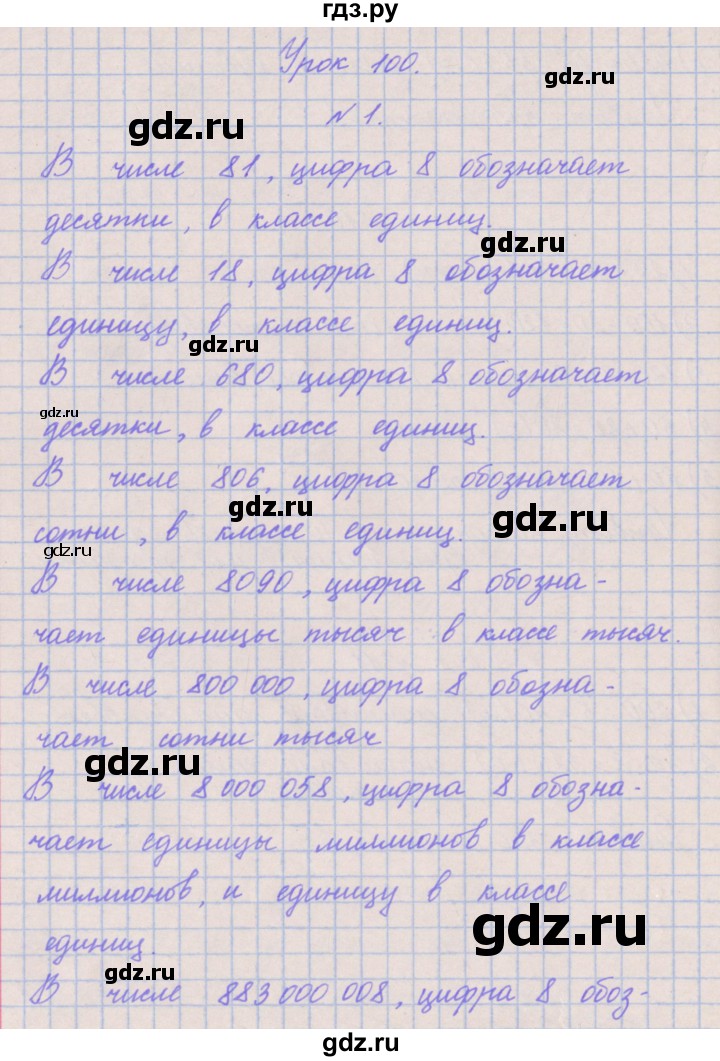 гдз.ру
Урок 100.
gdz.ru
gdz.ru
№ 1.
В числе 81, цифра 8 обозначает
десятки, в классе единиц.
gdz.ru
В числе 18, цифра 8 обозначает
единицу, в классе единиц.
gdz.ru
В числе 680, цифра 8 обозначает
gdz.ru
десятки, в классе единиц.
В числе 806, цифра 8 обозначает
gdz.ru
gdz.ru
сотни, в классе единиц.
gdz.ru
В числе 8090, цифра 8 обозна-
чает единицы тысяч в классе тысяч.
В числе 800 000, цифра 8 обозна-
чает сотни тысяч
gdz.ru
В числе 8 000 058, цифра 8 обозна-
чает единицы миллионов в классе
миллионов, и единицу в классе
gdz.ru
единиц.
gdz.ru
В числе 883 000 008, цифра 8 обоз-
gdz.ru